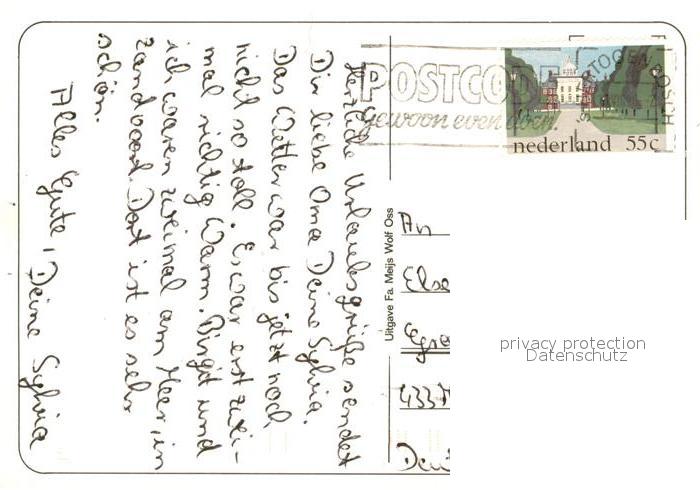 Herzliche Urlaubsgrüße sendet
Dir liebe Oma Deine Sylvia.
Das Wetter war bis jetzt noch
nicht so toll. Es war erst zwei-
mal richtig Warm. Birgit und
ich waren zweimal am Meer, in
Zandvoort. Dort ist es sehr
schön.
Alles Gute, Deine Sylvia
Uitgave Fa. Meijs Wolf Oss
POSTCODE
gewoon even doen.
nederland 55c
An
Else
433
privacy protection
Datenschutz